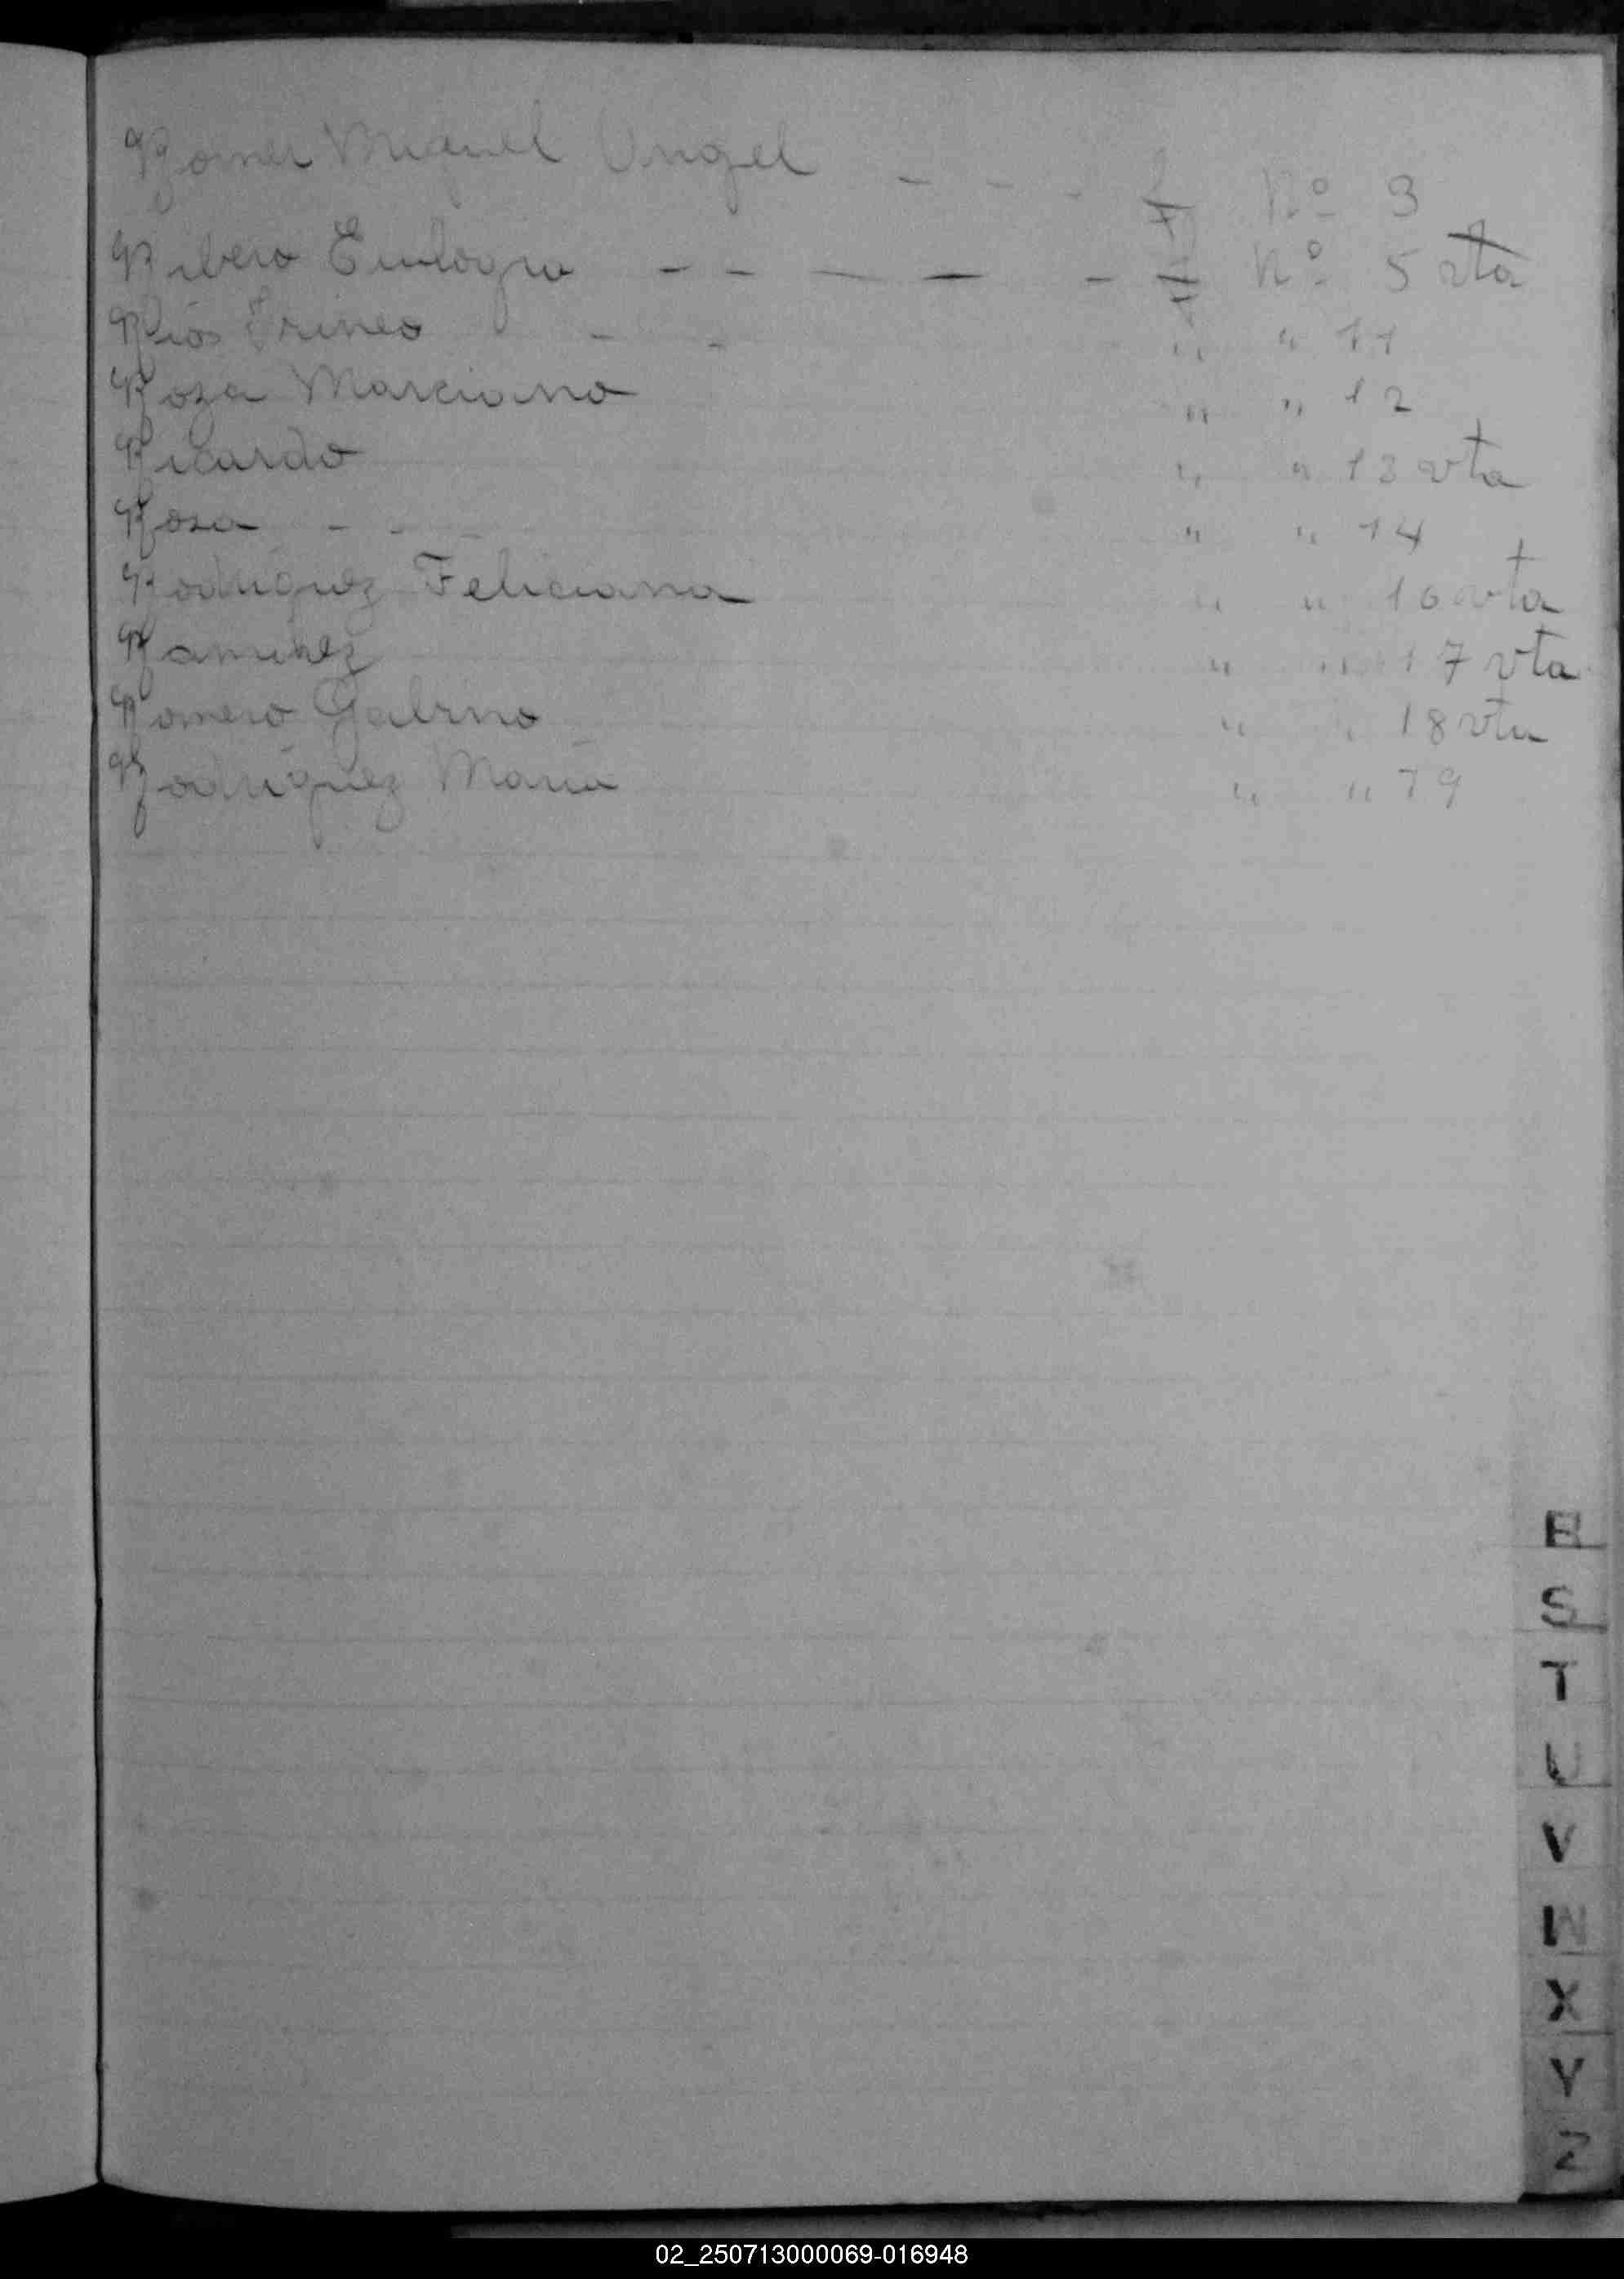 Romer Miguel Angel - - - f Nº 3
Ribero Eulogia - - - - - f Nº 5 vta
Rios Irineo - - " " 11
Roza Marciano " " 12
Ricardo " " 13 vta
Rosa - - " " 14
Rodriguez Feliciana " " 16 vta
Ramirez " " 17 vta
Romero Gabino " " 18 vta
Rodriguez Maria " " 19
R
S
T
U
V
W
X
Y
Z
02_250713000069-016948